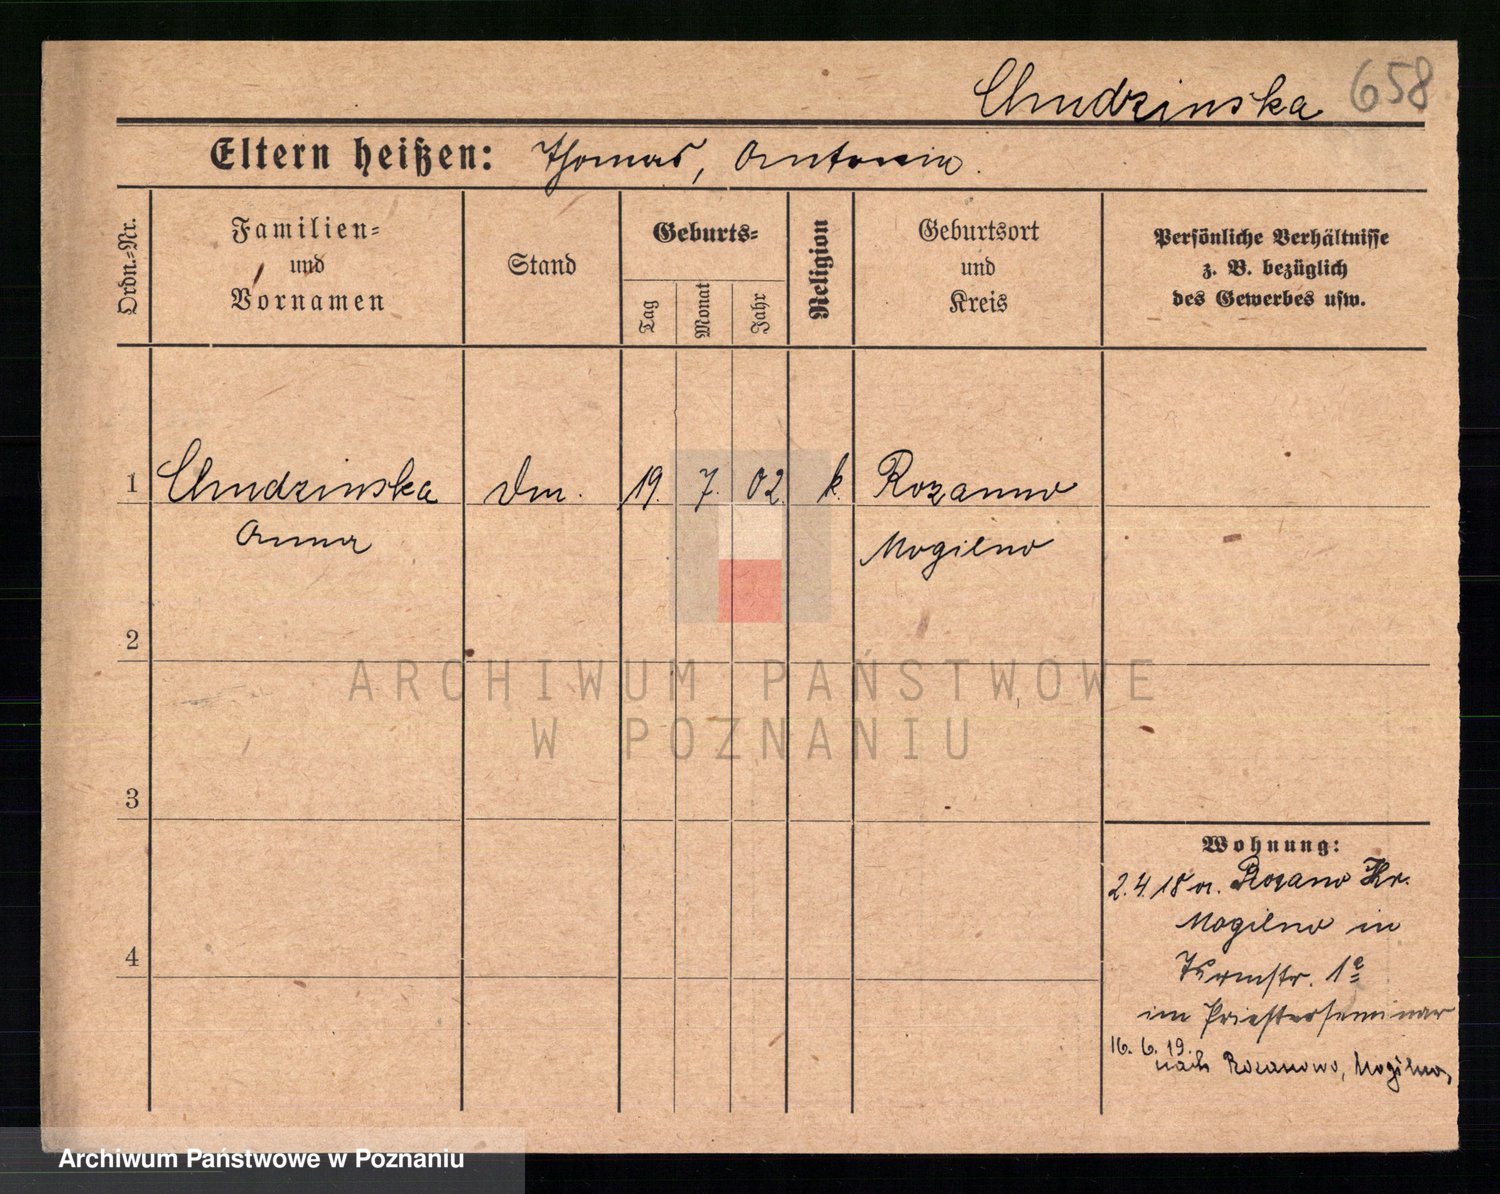 Chudzinska 658
Eltern heißen: Thomas, Antonin.
Ordn.-Nr.
Familien-
und
Vornamen
Stand
Geburts-
Tag
Monat
Jahr
Religion
Geburtsort
und
Kreis
Persönliche Verhältnisse
z. B. bezüglich
des Gewerbes usw.
1 Chudzinska 19. 7. 02. k. Rozanno
Anna Mogilno
2
ARCHIWUM PAŃSTWOWE
W POZNANIU
3
Wohnung:
2.4.18 a. Rozano Kr.
Mogilno in
4
Turmstr. 1a
im Priesterseminar
16. 6. 19.
nach Rozanowo, Mogilno,
Archiwum Państwowe w Poznaniu